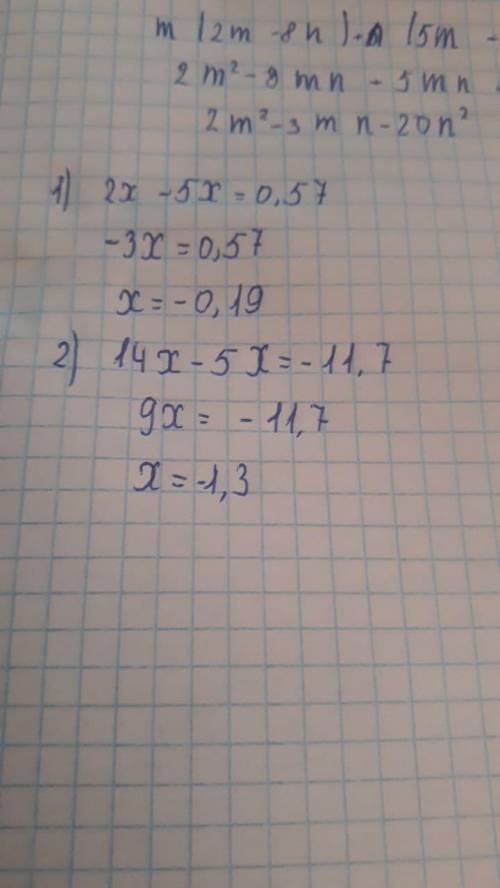 m (2m - 8n) - n (5m -
2m² - 8mn - 5mn
2m² - 3mn - 20n²
1) 2x - 5x = 0,57
-3x = 0,57
x = -0,19
2) 14x - 5x = -11,7
9x = -11,7
x = -1,3